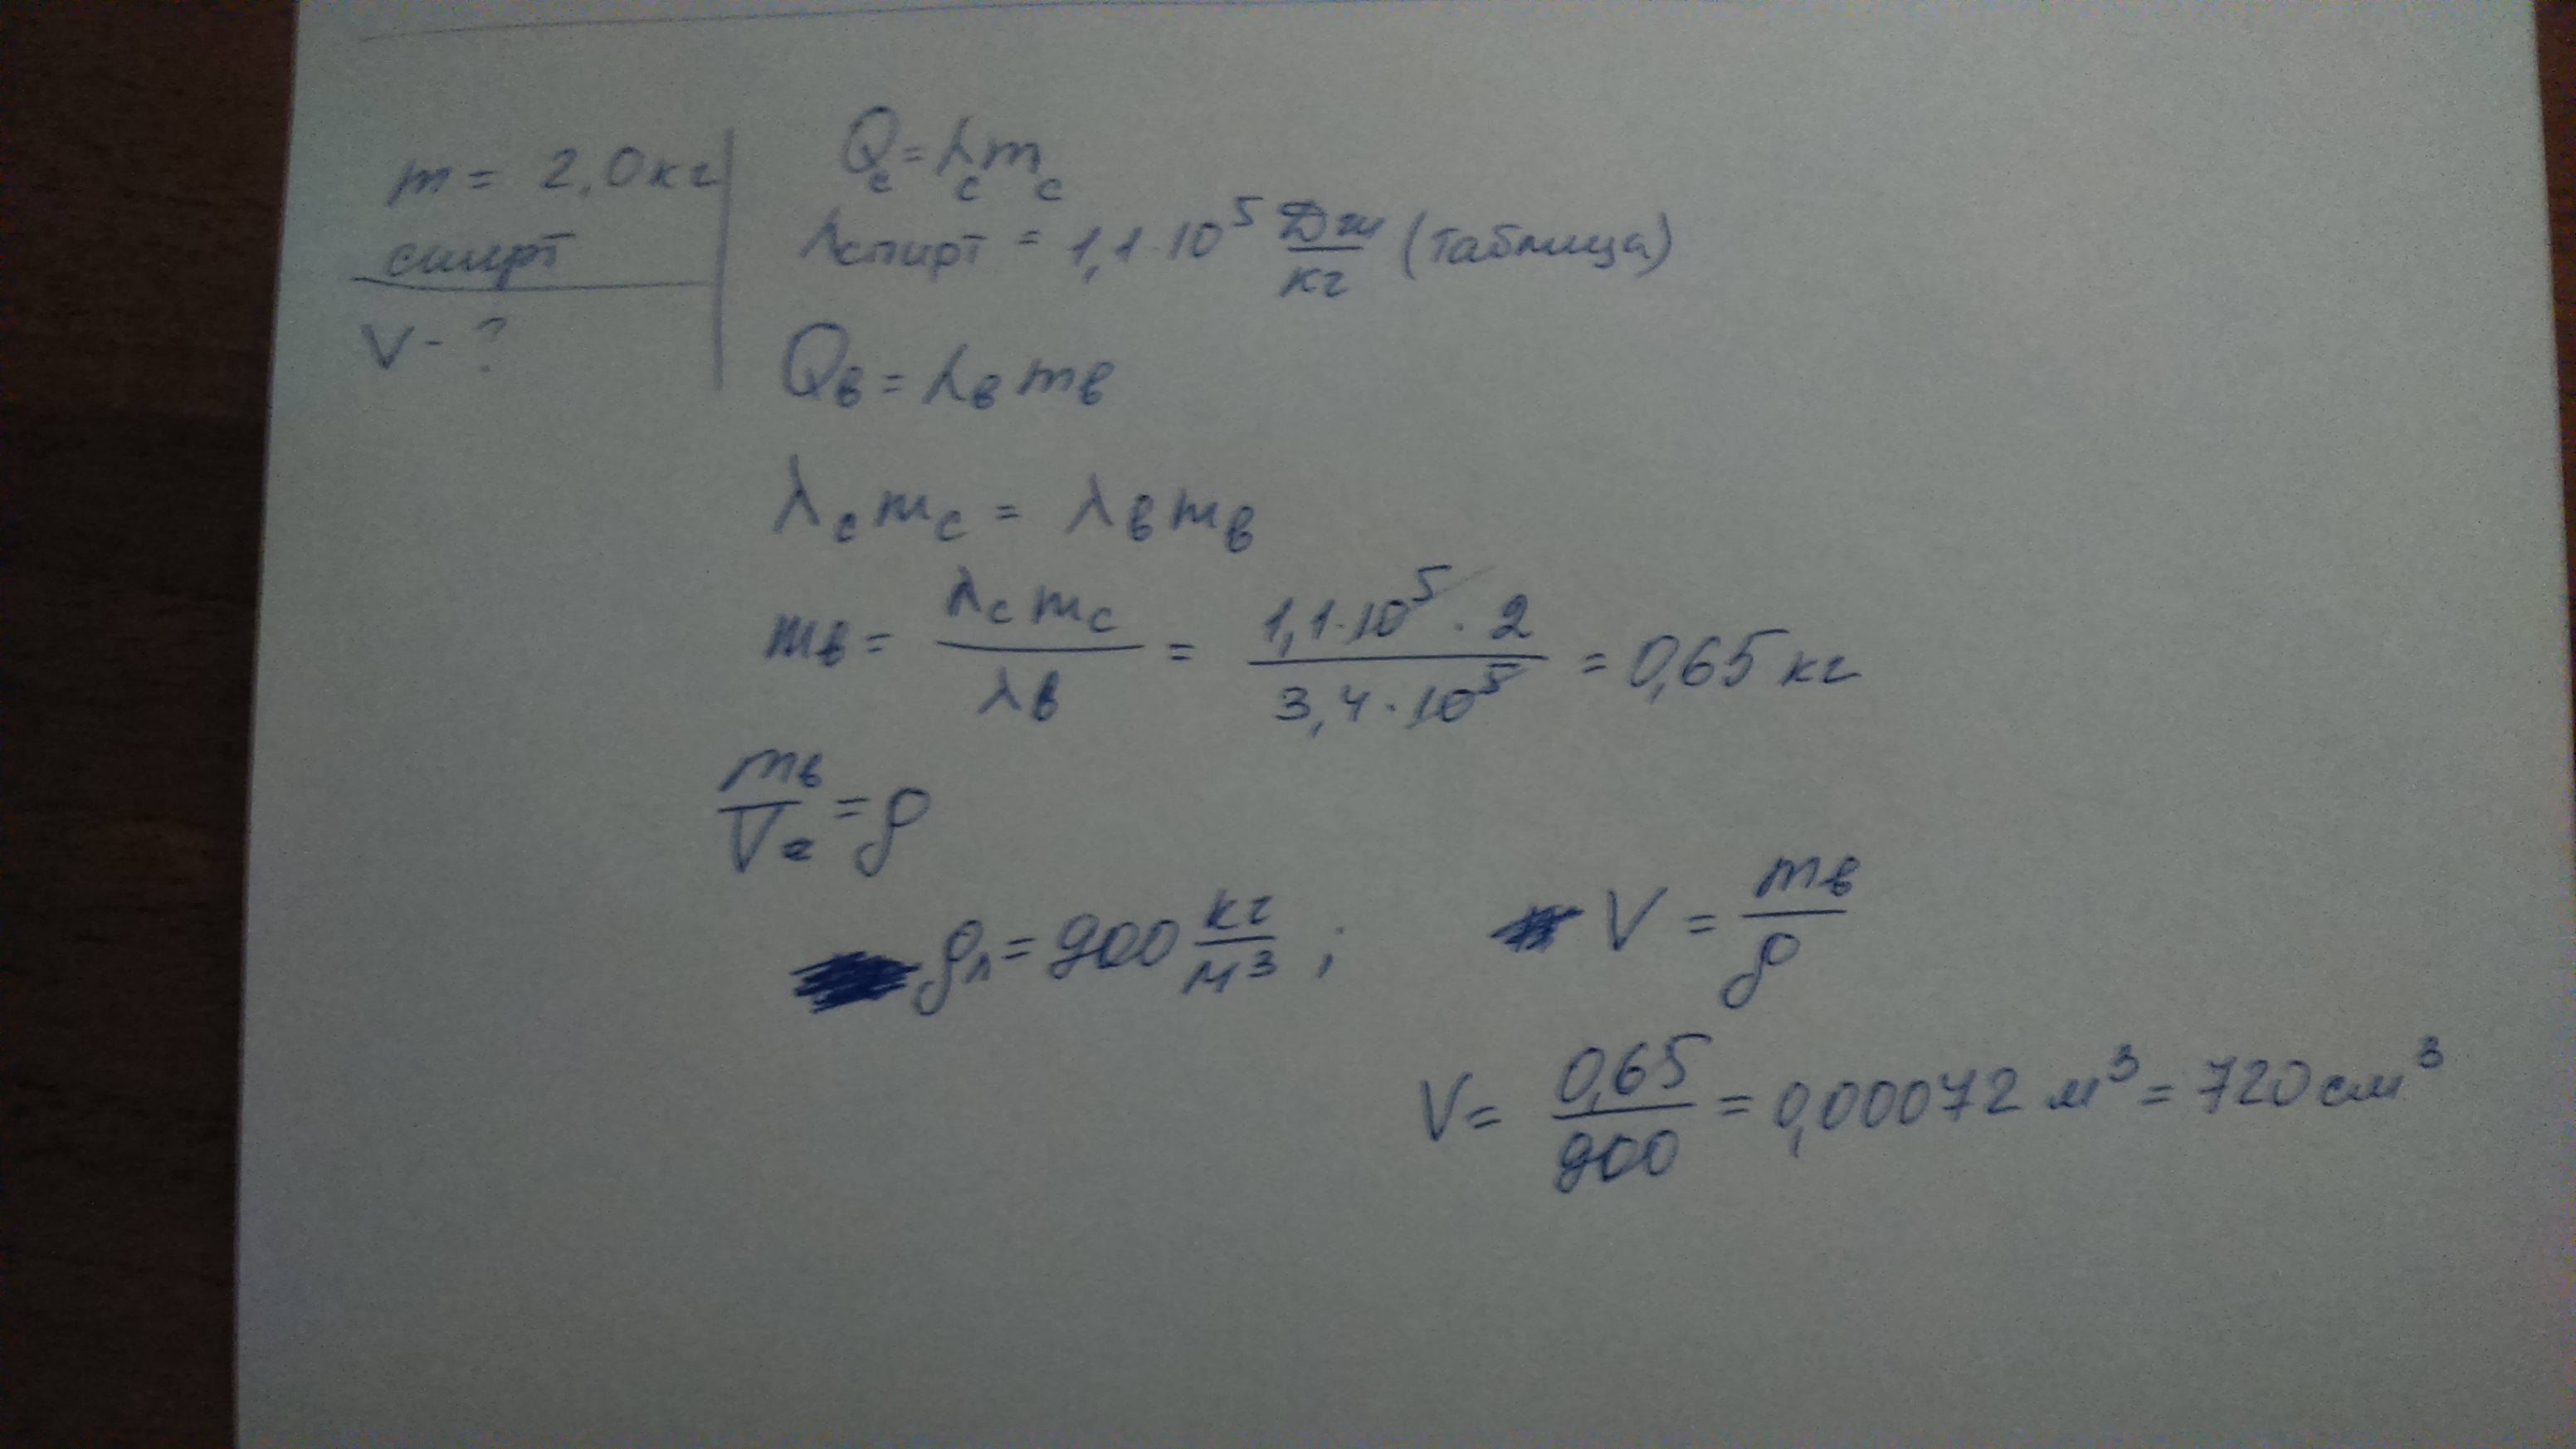 m = 2,0 кг
спирт
V - ?
Qc = λc mc
λспирт = 1,1 · 10⁵ Дж/кг (таблица)
Qв = λв mв
λc mc = λв mв
mв = λc mc / λв = 1,1·10⁵ · 2 / 3,4·10⁵ = 0,65 кг
mв / V = ρ
ρл = 900 кг/м³ ; V = mв / ρ
V = 0,65 / 900 = 0,00072 м³ = 720 см³